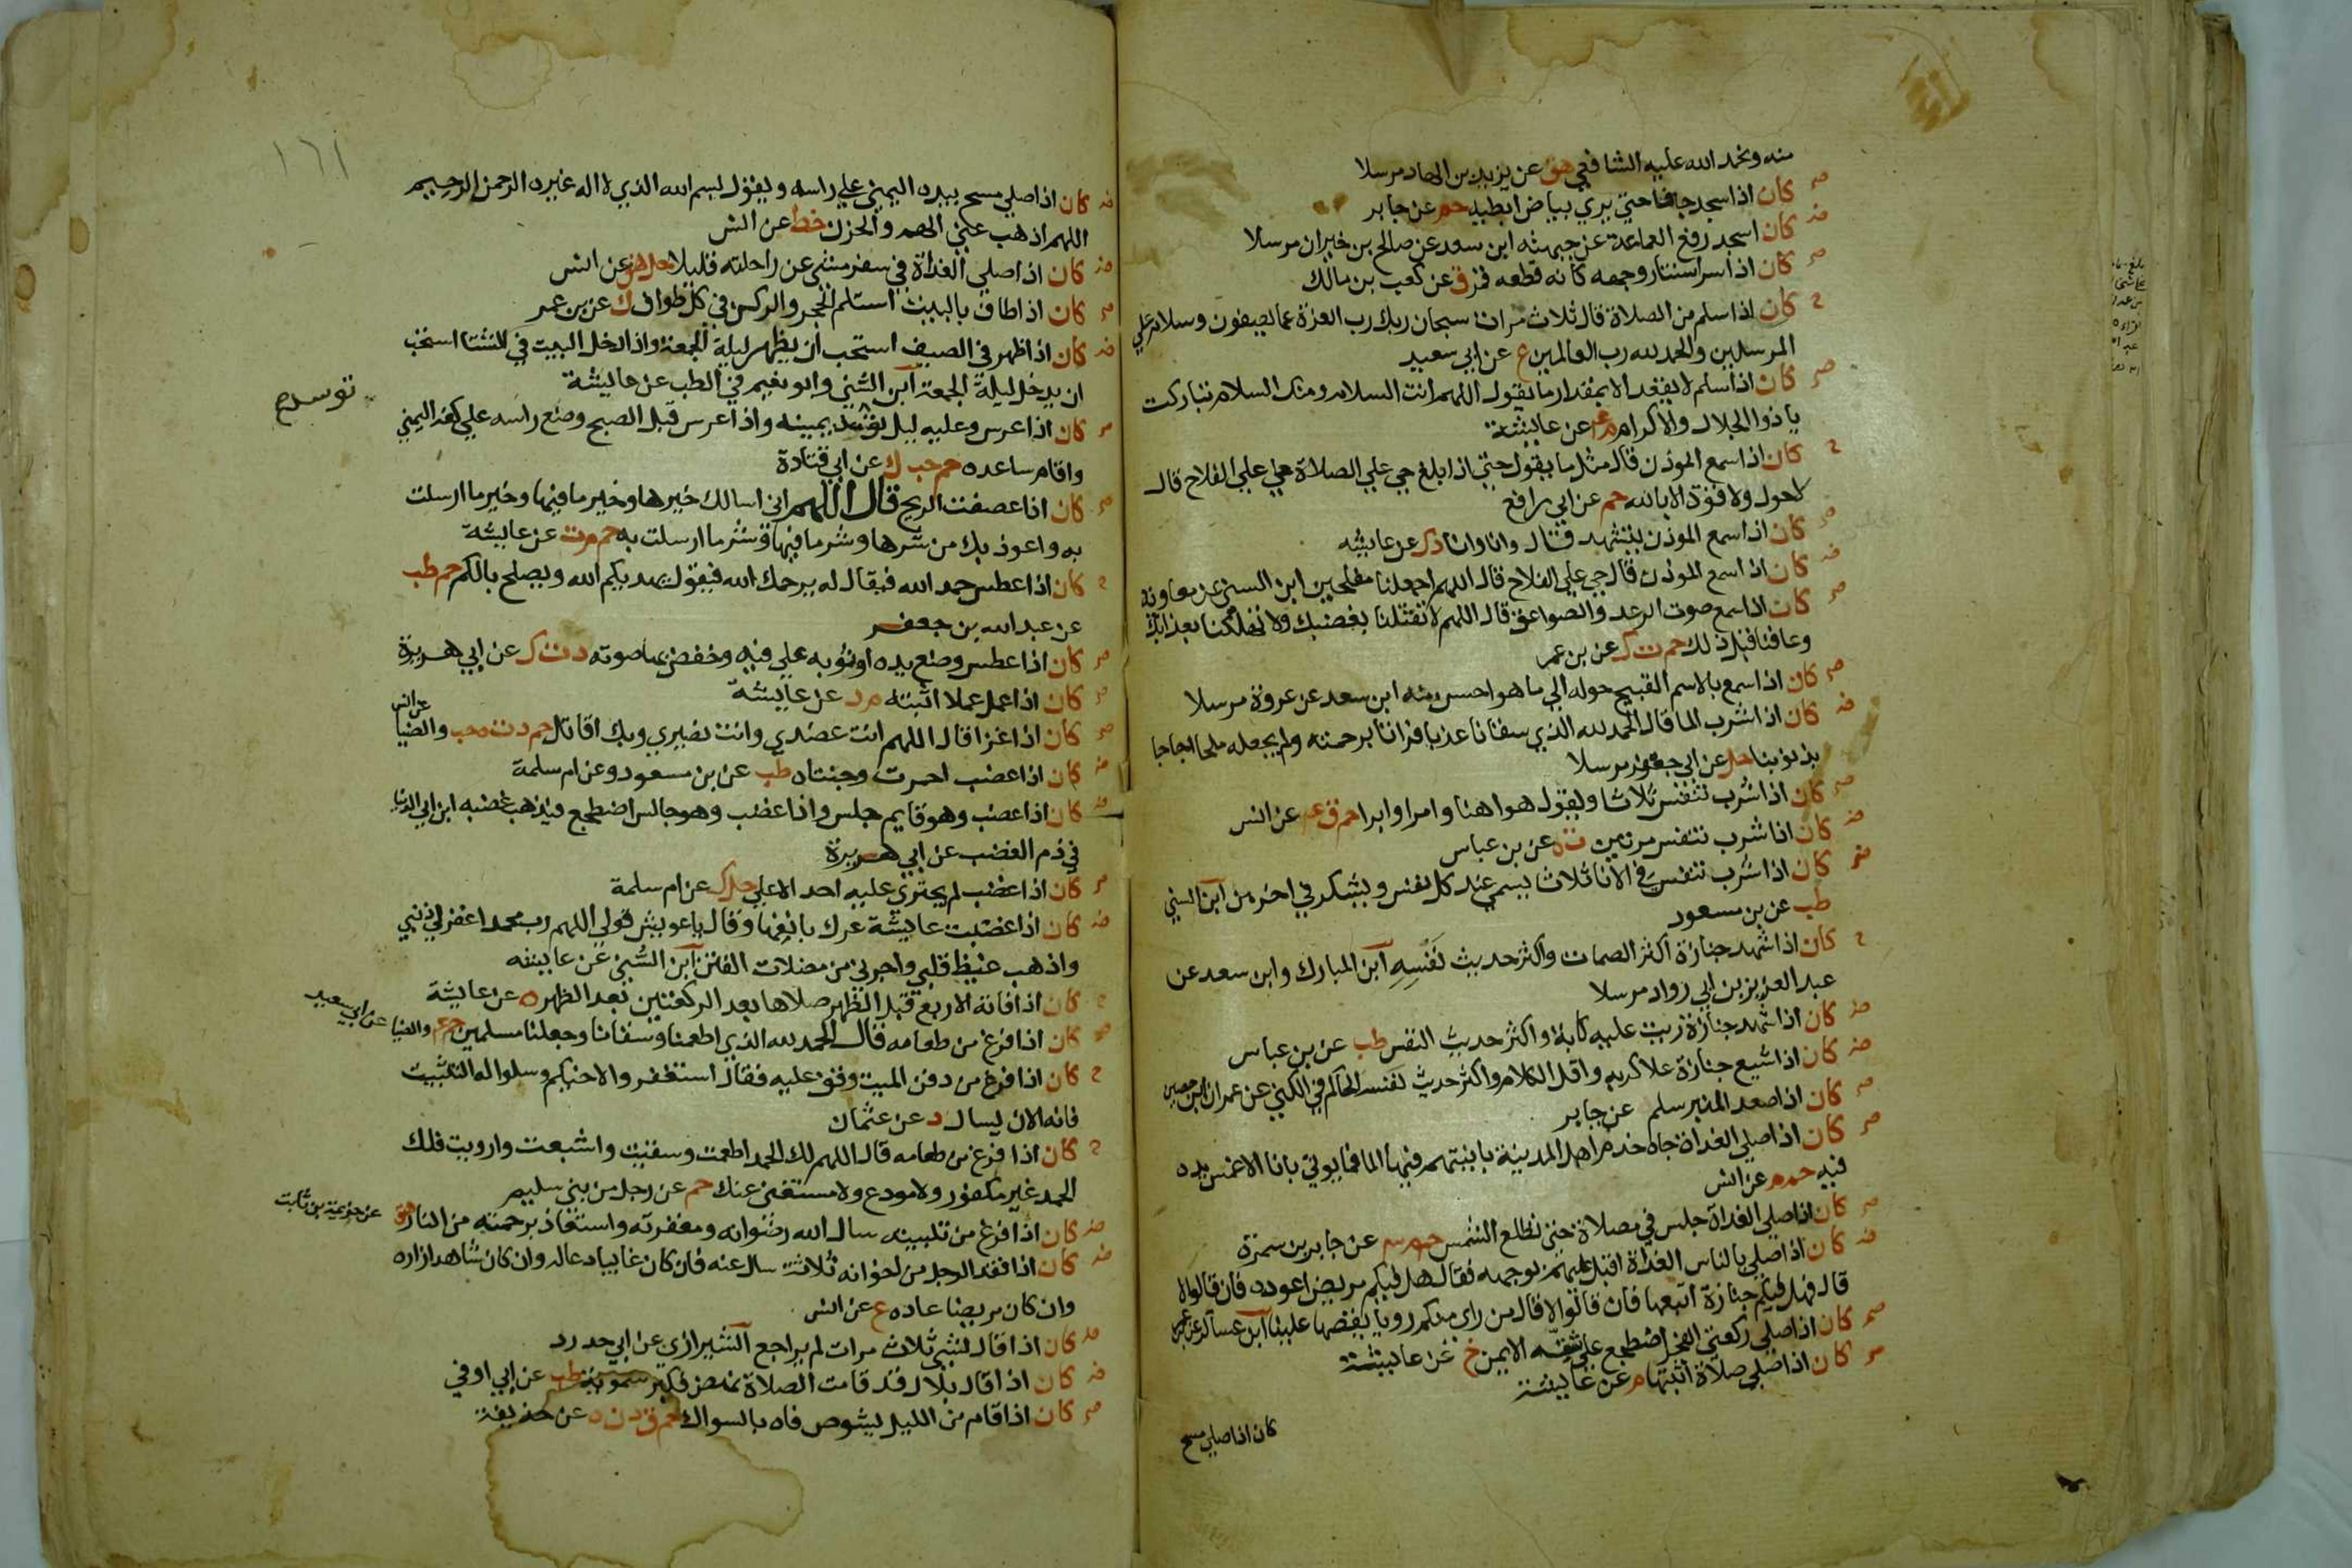 منه ونحمد الله عليه الشافعي هق عن يزيد بن الهاد مرسلا
صح كان اذا سجد جافا حتي يري بياض ابطيه حم عن جابر
ض كان اسجد رفع العمامة عن جبهته ابن سعد عن صالح بن خيران مرسلا
صح كان اذا سر استنار وجهه كانه قطعه قمر ق عن كعب بن مالك
ح كان اذا سلم من الصلاة قال ثلاث مرات سبحان ربك رب العزة عما يصفون وسلام علي
المرسلين والحمد لله رب العالمين ع عن ابي سعيد
صح كان اذا سلم لا يقعد الا بمقدار ما يقول اللهم انت السلام ومنك السلام تباركت
يا ذو الجلال والاكرام م عه عن عايشة
ح كان اذا سمع الموذن قال مثل ما يقول حتي اذا بلغ حي علي الصلاة حي علي الفلاح قال
لا حول ولا قوة الا بالله حم عن ابي رافع
صح كان اذا سمع الموذن يتشهد قال وانا وانا د ك عن عايشه
ض كان اذا سمع الموذن قال حي علي الفلاح قال اللهم اجعلنا مفلحين ابن السني عن معاوية
صح كان اذا سمع صوت الرعد والصواعق قال اللهم لا تقتلنا بغضبك ولا تهلكنا بعذابك
وعافنا قبل ذلك حم ت ك عن بن عمر
صح كان اذا سمع بالاسم القبيح حوله الي ما هو احسن منه ابن سعد عن عروة مرسلا
ض كان اذا شرب الما قال الحمد لله الذي سقانا عذبا فراتا برحمته ولم يجعله ملحا اجاجا
بذنوبنا حل عن ابي جعفر مرسلا
صح كان اذا شرب تنفس ثلاثا ويقول هو اهنا وامرا وابرا حم ق عه عن انس
ض كان اذا شرب تنفس مرتين ت ه عن بن عباس
ض كان اذا شرب تنفس في الانا ثلاثا يسمي عند كل نفس ويشكر في اخرهن ابن السني
طب عن بن مسعود
ح كان اذا شهد جنازة اكثر الصمات واكثر حديث نفسه ابن المبارك وابن سعد عن
عبد العزيز بن ابي رواد مرسلا
ض كان اذا شهد جنازة ريت عليه كابة واكثر حديث النفس طب عن بن عباس
ض كان اذا شيع جنازة علا كربه واقل الكلام واكثر حديث نفسه الحاكم في الكني عن عمران ابن حصين
صح كان اذا صعد المنبر سلم عن جابر
صح كان اذا صلي الغداة جاه خدم اهل المدينة بانيتهم فيها الما فما يوتي بانا الا غمس يده
فيه حم م عن انس
صح كان اذا صلي الغداة جلس في مصلاة حتي تطلع الشمس حم م عن جابر بن سمرة
ض كان اذا صلي بالناس الغداة اقبل عليهم بوجهه فقال هل فيكم مريض اعوده فان قالوا لا
قال فهل فيكم جنازة اتبعها فان قالوا لا قال من راي منكم رويا يقصها علينا ابن عساكر عن بن عمر
صح كان اذا صلي ركعتي الفجر اضطجع علي شقه الايمن خ عن عايشة
صح كان اذا صلي صلاة اثبتها م عن عايشة
كان اذا صلي مسح
١٦١
ض كان اذا صلي مسح بيده اليمني علي راسه ويقول بسم الله الذي لا اله غيره الرحمن الرحيم
اللهم اذهب عني الهم والحزن خط عن انس
ض كان اذا صلي الغداة في سفر مشي عن راحلته قليلا حل هق عن انس
صح كان اذا طاف بالبيت استلم الحجر والركن في كل طواف ك عن بن عمر
ض كان اذا ظهر في الصيف استحب ان يظهر ليلة الجمعة واذا دخل البيت في الشتا استحب
ان يدخل ليلة الجمعة ابن السني وابو نعيم في الطب عن عايشة
صح كان اذا عرس وعليه ليل توسد يمينه واذا عرس قبل الصبح وضع راسه علي كفه اليمني
توسد ح
واقام ساعده حم حب ك عن ابي قتادة
صح كان اذا عصفت الريح قال اللهم اني اسالك خيرها وخير ما فيها وخير ما ارسلت
به واعوذ بك من شرها وشر ما فيها وشر ما ارسلت به حم م ت عن عايشة
ح كان اذا عطس حمد الله فيقال له يرحمك الله فيقول يهديكم الله ويصلح بالكم حم طب
عن عبد الله بن جعفر
صح كان اذا عطس وضع يده او ثوبه علي فيه وخفض بها صوته د ت ك عن ابي هريرة
صح كان اذا عمل عملا اثبته م د عن عايشة
صح كان اذا غزا قال اللهم انت عضدي وانت نصيري وبك اقاتل حم د ت ه حب والضيا عن انس
ض كان اذا غضب احمرت وجنتاه طب عن بن مسعود وعن ام سلمة
ض كان اذا غضب وهو قايم جلس واذا غضب وهو جالس اضطجع فيذهب غضبه ابن ابي الدنيا
في ذم الغضب عن ابي هريرة
صح كان اذا غضب لم يجتري عليه احد الا علي حل ك عن ام سلمة
ض كان اذا غضبت عايشة عرك بانفها وقال يا عويش قولي اللهم رب محمد اغفر لي ذنبي
واذهب غيظ قلبي واجرني من مضلات الفتن ابن السني عن عايشة
ح كان اذا فاته الاربع قبل الظهر صلاها بعد الركعتين بعد الظهر ه عن عايشة
صح كان اذا فرغ من طعامه قال الحمد لله الذي اطعمنا وسقانا وجعلنا مسلمين حم عه والضيا عن ابي سعيد
ح كان اذا فرغ من دفن الميت وقف عليه فقال استغفروا لاخيكم وسلوا له التثبيت
فانه الان يسال د عن عثمان
ح كان اذا فرغ من طعامه قال اللهم لك الحمد اطعمت وسقيت واشبعت وارويت فلك
الحمد غير مكفور ولا مودع ولا مستغني عنك حم عن رجل من بني سليم
ض كان اذا فرغ من تلبيته سال الله رضوانه ومغفرته واستعاذ برحمته من النار هق عن خزيمة بن ثابت
ض كان اذا فقد الرجل من اخوانه ثلاثة سال عنه فان كان غايبا دعا له وان كان شاهدا زاره
وان كان مريضا عاده ع عن انس
ض كان اذا قال لشي ثلاث مرات لم يراجع الشيرازي عن ابي حدرد
ض كان اذا قال بلال قد قامت الصلاة نهض فكبر سمويه طب عن ابي اوفي
صح كان اذا قام من الليل يشوص فاه بالسواك حم ق د ن ه عن حذيفة